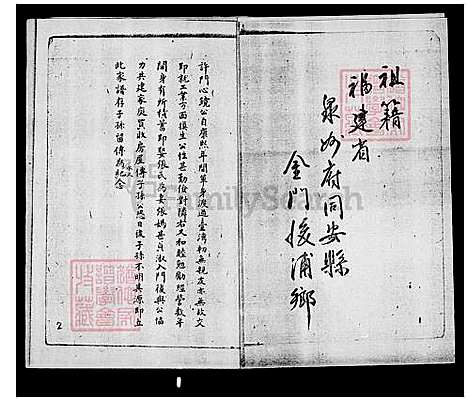 祖籍
福建省
泉州府同安縣
金門後浦鄉
許門心鏡公自康熙年間單身渡過臺灣初無親友亦無故交
即就工業方面復生公性甚勤儉對隣右又和睦勉勵經營數年
間身有所積蓄即娶張氏為妻張媽甚貞淑入門後與公協
力共建家庭買收房屋傳子孫公恐日後子孫不明其源即立
此家譜存子孫留傳為永久紀念
2
FamilySearch